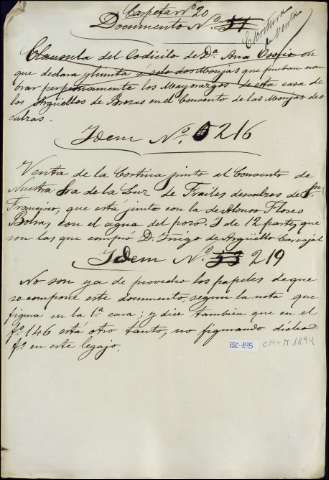 Carpeta nº 20
Documento Nº
Clausula del Codicilo de Dª Ana Osorio en
que declara plumta a solo dos Monjas que puedan nom
brar perpetuamente los Mayorazgos de esta casa de
los Arguellos de Brozas en el Convento de las Monjas des
calzas.
Idem Nº 216
Venta de la Cortina junto al Convento de
Nuestra Sra de la Luz de Frailes descalzos de Sn
Francisco, que está junto con la de Alonso Flores
Botros, con el agua del pozo. Y de 12 partes, que
son las que compró D. Iñigo de Arguello Carvajal
Idem Nº 219
No son ya de provecho los papeles de que
se compone este documento, segun la nota que
figura en la 1ª cara; y dice tambien que en el
fº 146 está otro tanto, no figurando dicho
fº en este legajo.